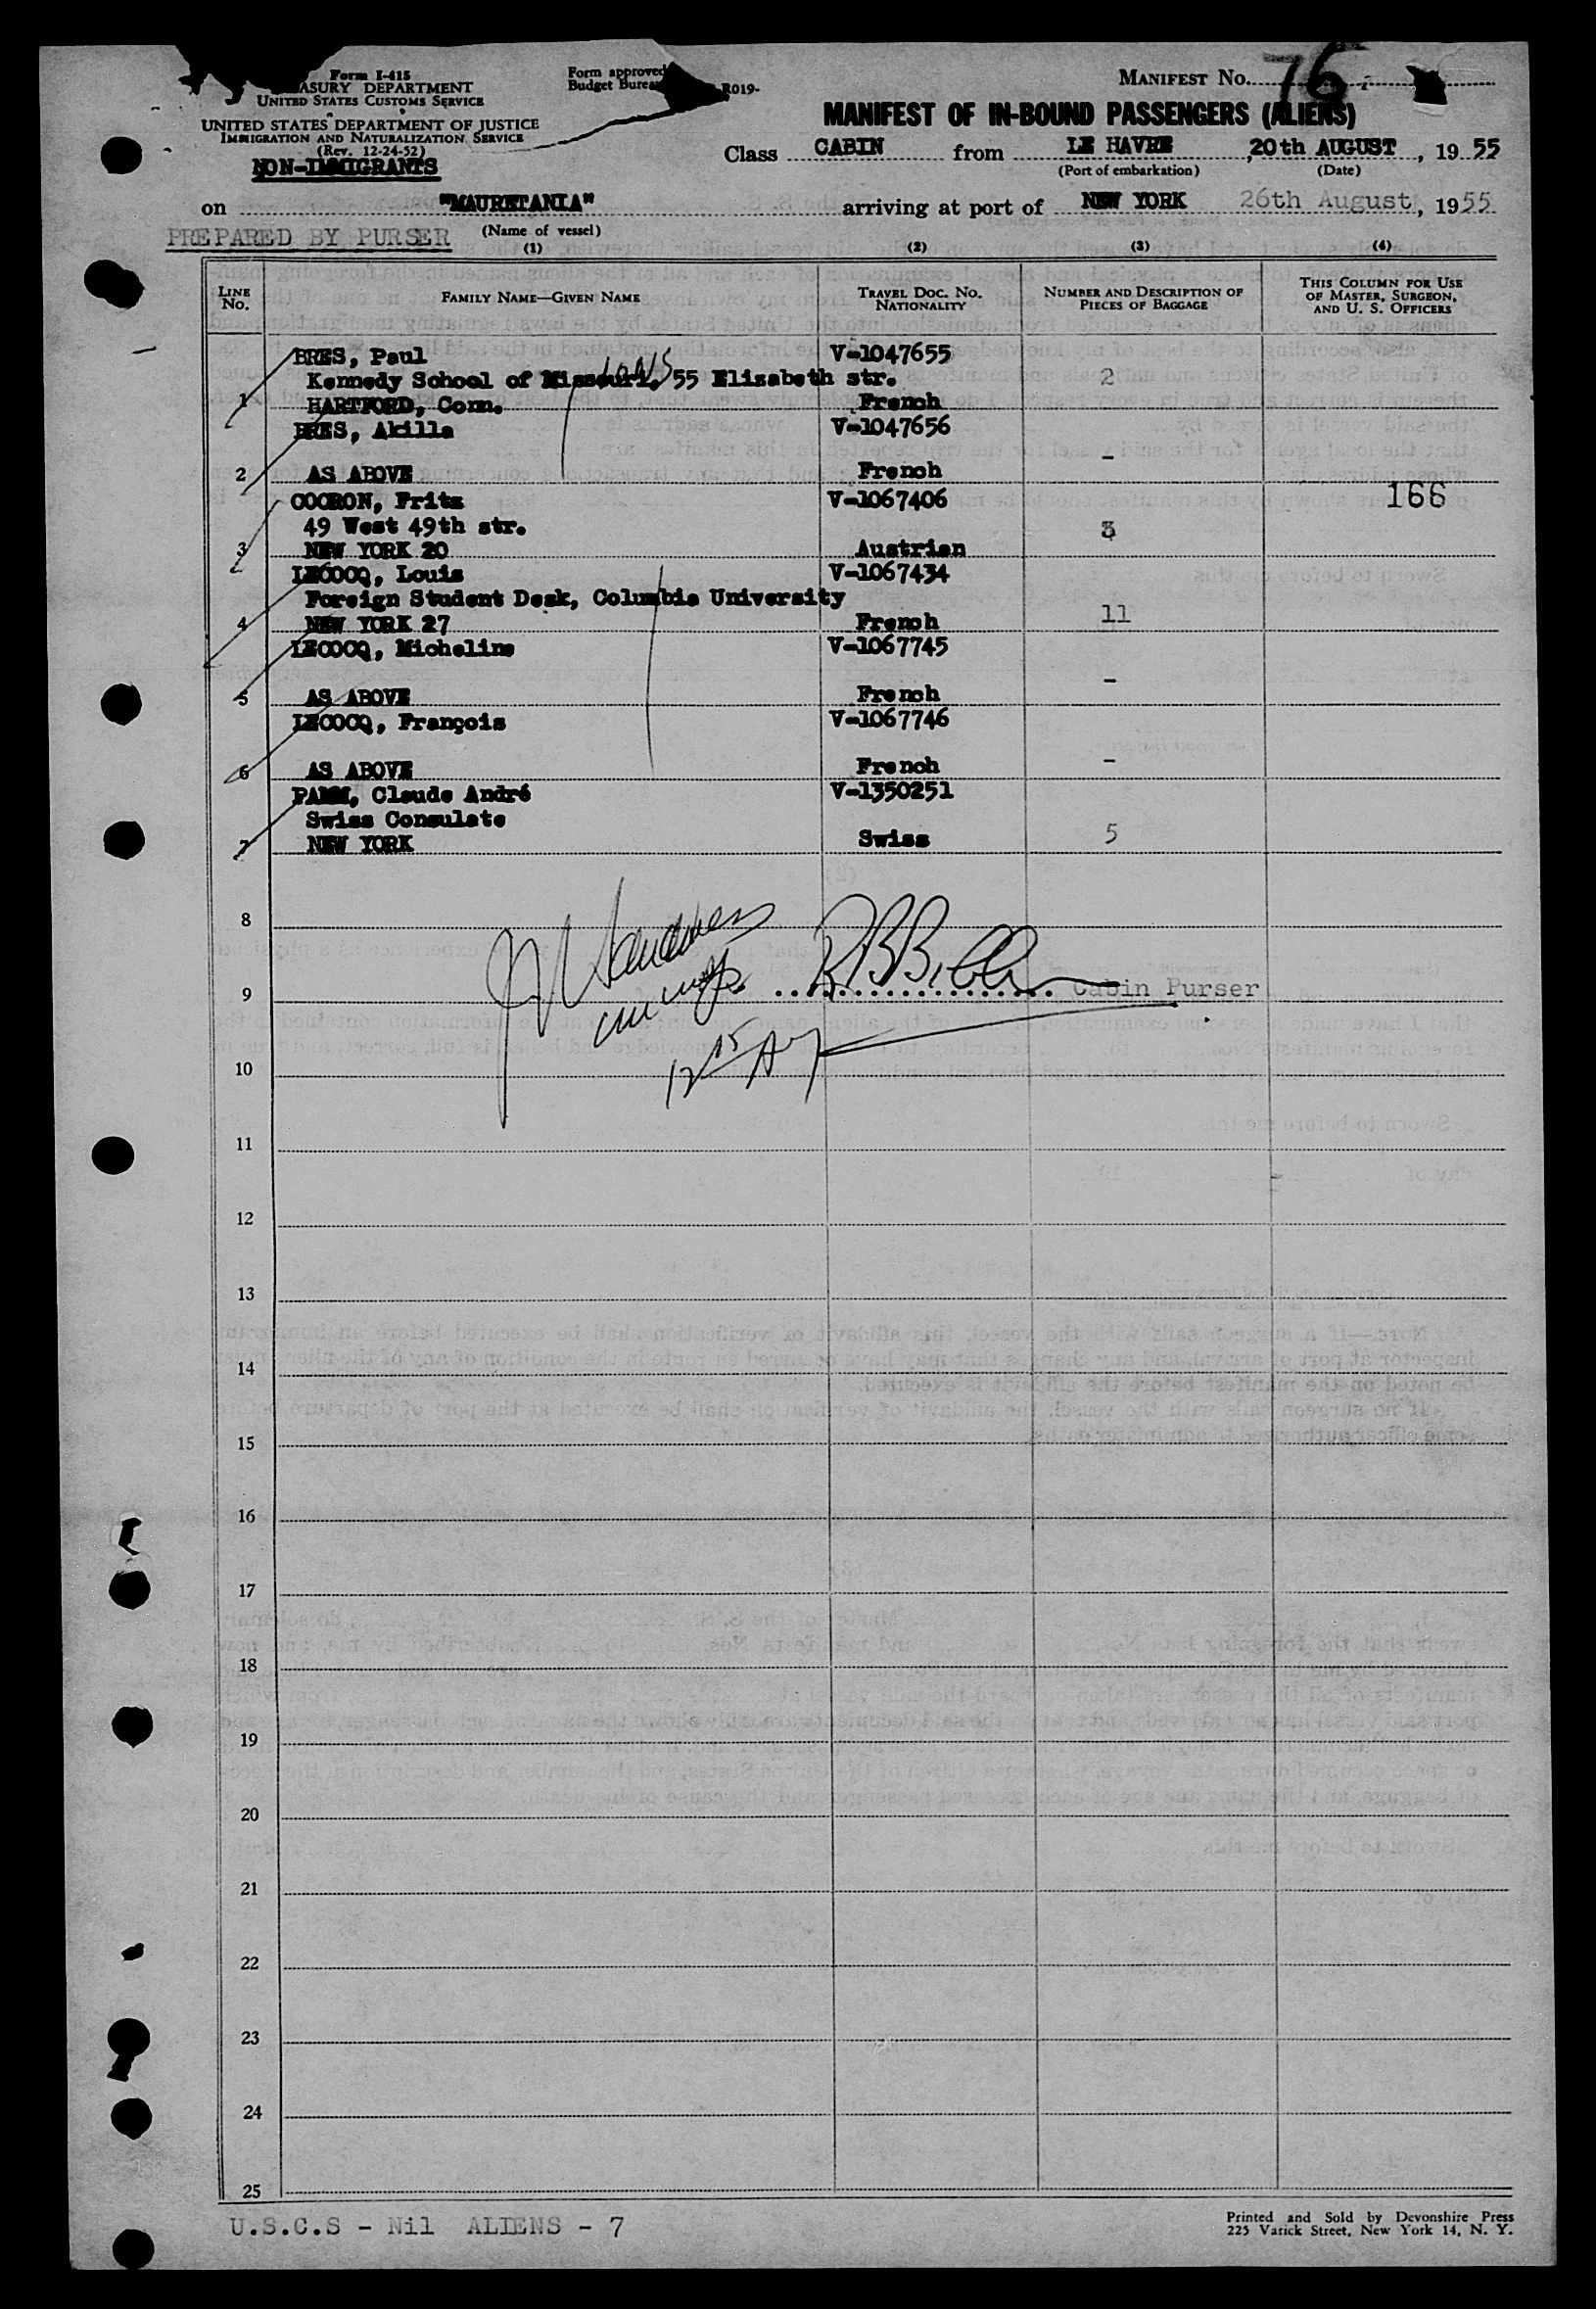 Form I-415
ASURY DEPARTMENT
UNITED STATES CUSTOMS SERVICE
UNITED STATES DEPARTMENT OF JUSTICE
IMMIGRATION AND NATURALIZATION SERVICE
(Rev. 12-24-52)
NON-IMMIGRANTS
Form approved
Budget Burea R019-
MANIFEST NO. 76
MANIFEST OF IN-BOUND PASSENGERS (ALIENS)
Class CABIN from LE HAVRE, 20th AUGUST, 1955
(Port of embarkation) (Date)
on "MAURETANIA" arriving at port of NEW YORK 26th August, 1955
PREPARED BY PURSER (Name of vessel)
(1) (2) (3) (4)
LINE NO. FAMILY NAME—GIVEN NAME TRAVEL DOC. NO. NATIONALITY NUMBER AND DESCRIPTION OF PIECES OF BAGGAGE THIS COLUMN FOR USE OF MASTER, SURGEON, AND U. S. OFFICERS
BRES, Paul V-1047655
Kennedy School of Missouri, 55 Elizabeth str. 2
1 HARTFORD, Conn. French
BRES, Akilla V-1047656
2 AS ABOVE French -
COCRON, Fritz V-1067406 166
49 West 49th str. 3
3 NEW YORK 20 Austrian
LECOCQ, Louis V-1067434
Foreign Student Desk, Columbia University
4 NEW YORK 27 French 11
LECOCQ, Micheline V-1067745
5 AS ABOVE French -
LECOCQ, François V-1067746
6 AS ABOVE French -
PAMM, Claude André V-1350251
Swiss Consulate
7 NEW YORK Swiss 5
8
9 Cabin Purser
10
11
12
13
14
15
16
17
18
19
20
21
22
23
24
25
U.S.C.S - Nil ALIENS - 7
Printed and Sold by Devonshire Press
225 Varick Street, New York 14, N. Y.